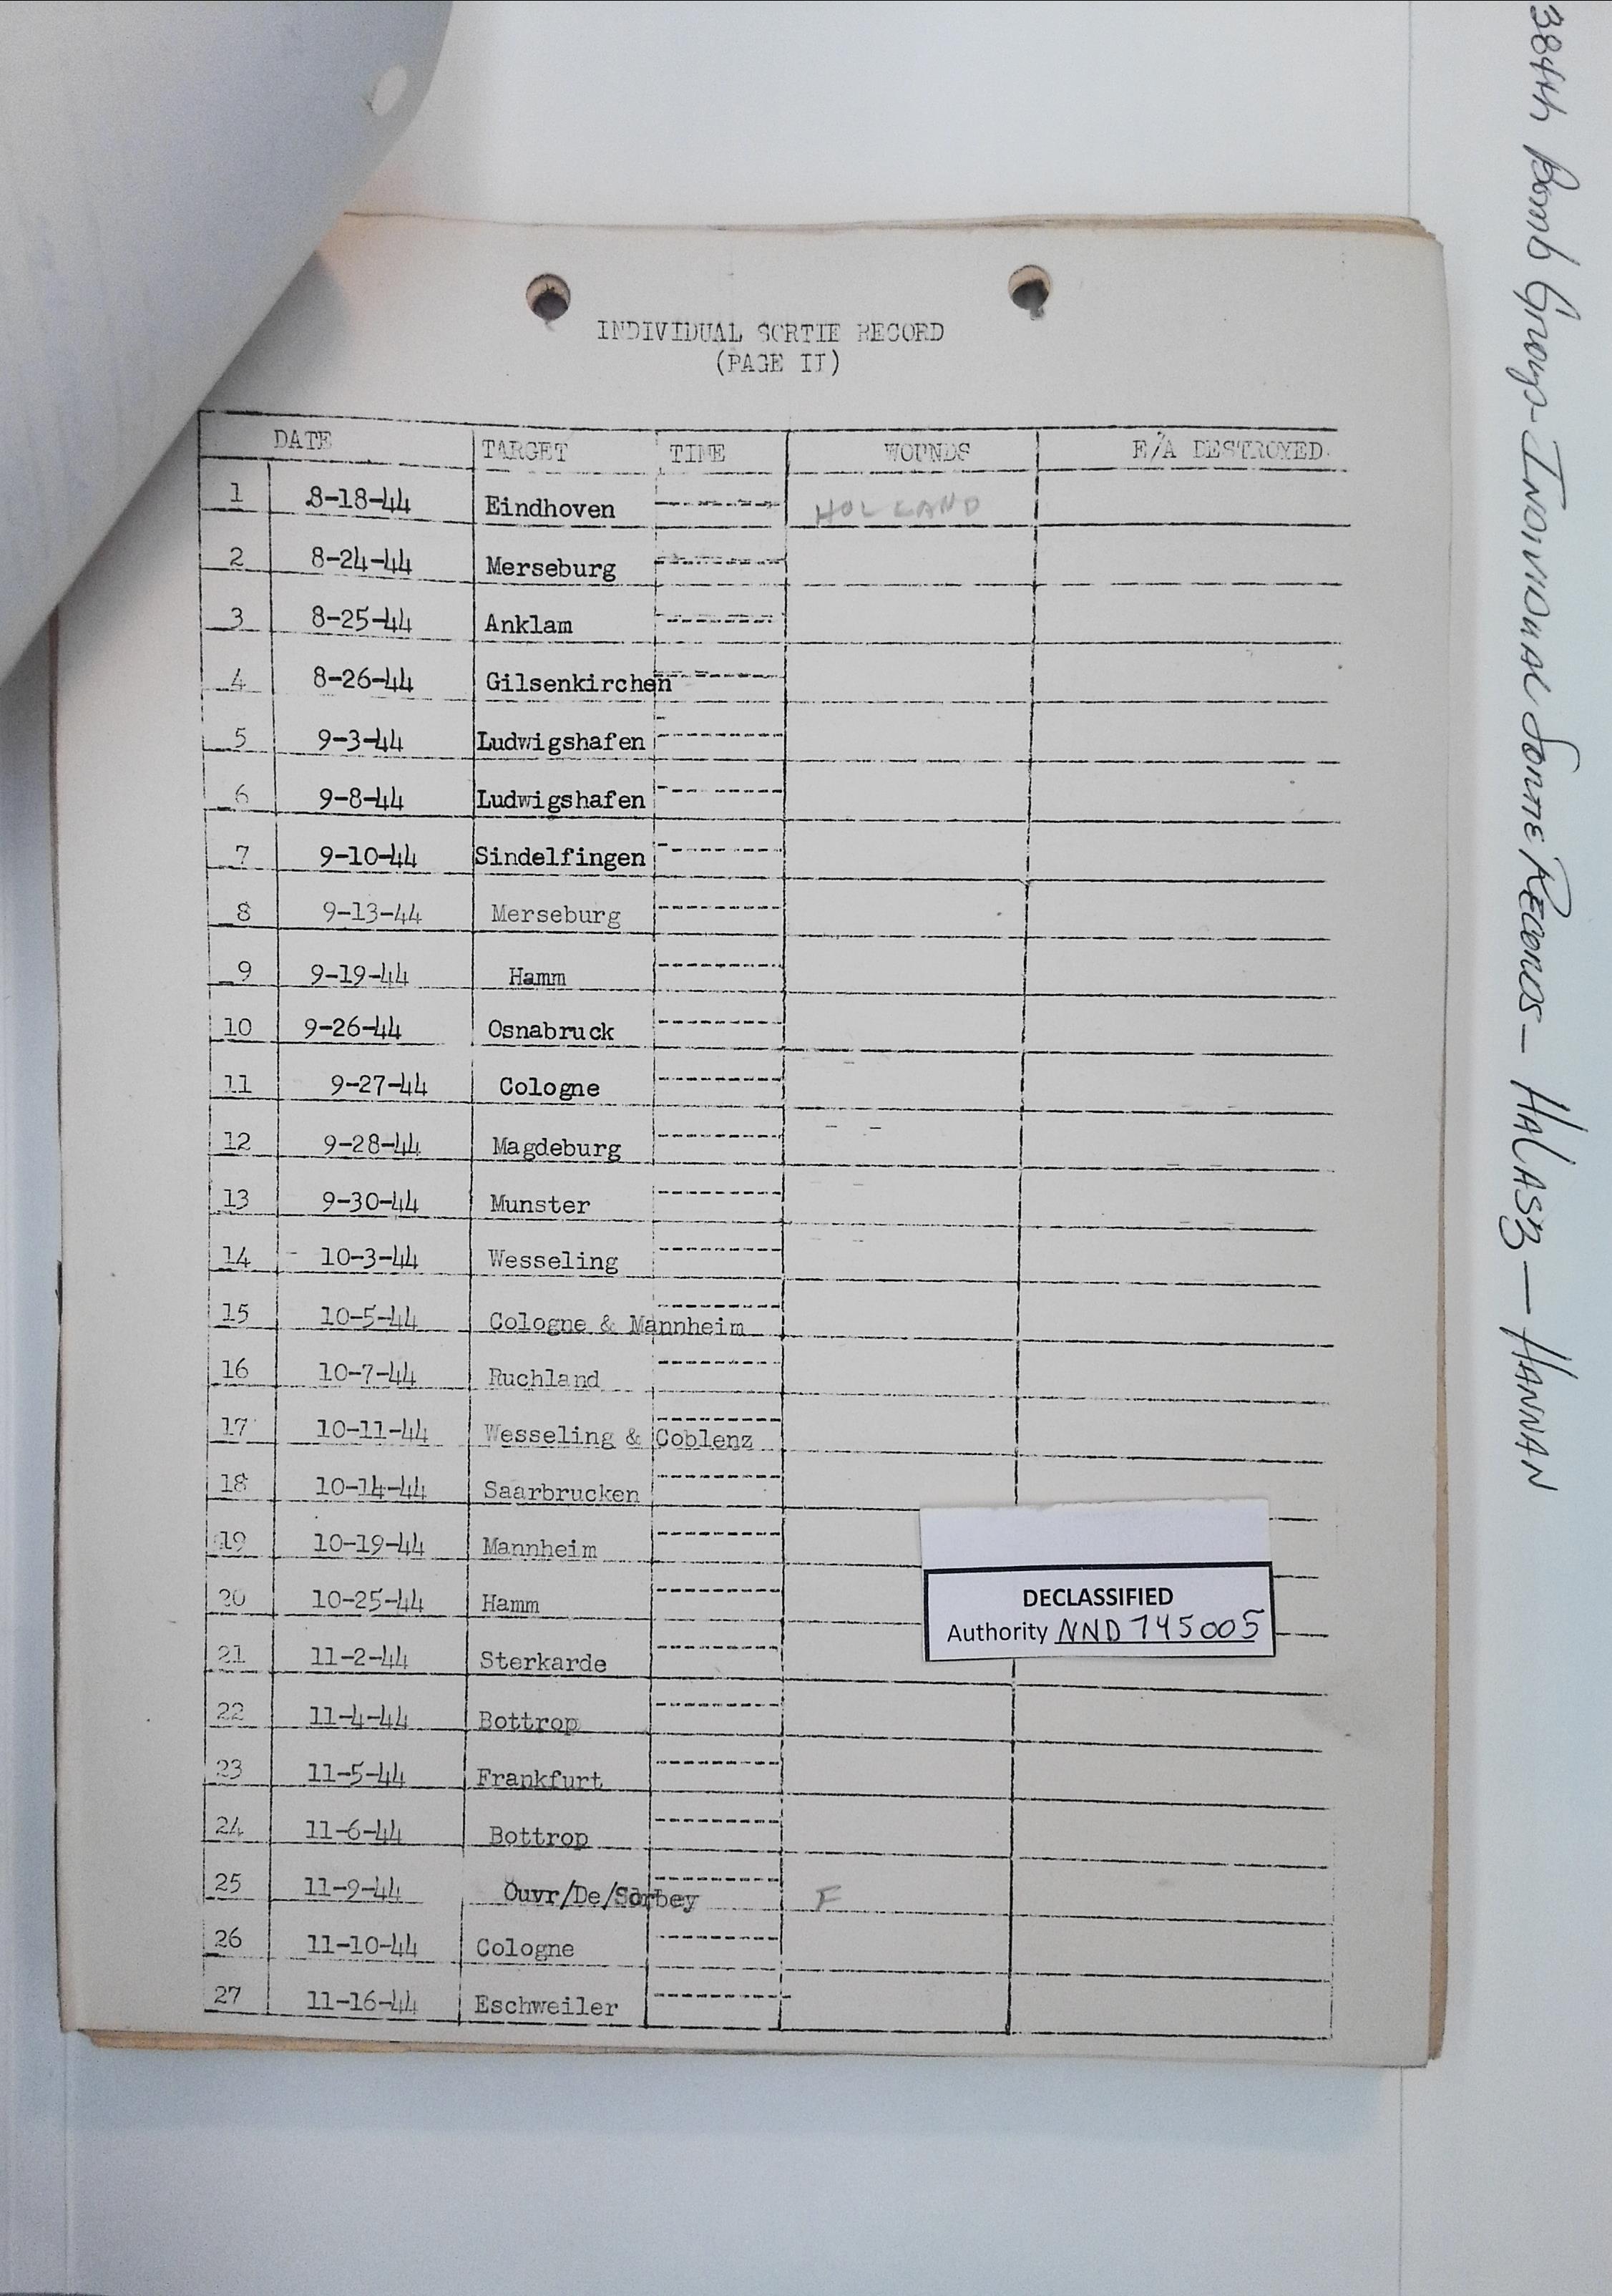 INDIVIDUAL SORTIE RECORD
(PAGE II)
DATE TARGET TIME WOUNDS E/A DESTROYED
1 8-18-44 Eindhoven HOLLAND
2 8-24-44 Merseburg
3 8-25-44 Anklam
4 8-26-44 Gilsenkirchen
5 9-3-44 Ludwigshafen
6 9-8-44 Ludwigshafen
7 9-10-44 Sindelfingen
8 9-13-44 Merseburg
9 9-19-44 Hamm
10 9-26-44 Osnabruck
11 9-27-44 Cologne
12 9-28-44 Magdeburg
13 9-30-44 Munster
14 10-3-44 Wesseling
15 10-5-44 Cologne & Mannheim
16 10-7-44 Ruchland
17 10-11-44 Wesseling & Coblenz
18 10-14-44 Saarbrucken
19 10-19-44 Mannheim
20 10-25-44 Hamm
21 11-2-44 Sterkarde
22 11-4-44 Bottrop
23 11-5-44 Frankfurt
24 11-6-44 Bottrop
25 11-9-44 Ouvr/De/Sorbey F
26 11-10-44 Cologne
27 11-16-44 Eschweiler
DECLASSIFIED
Authority NND 745005
384th Bomb Group - INDIVIDUAL SORTIE RECORDS - HALASZ - HANNAN